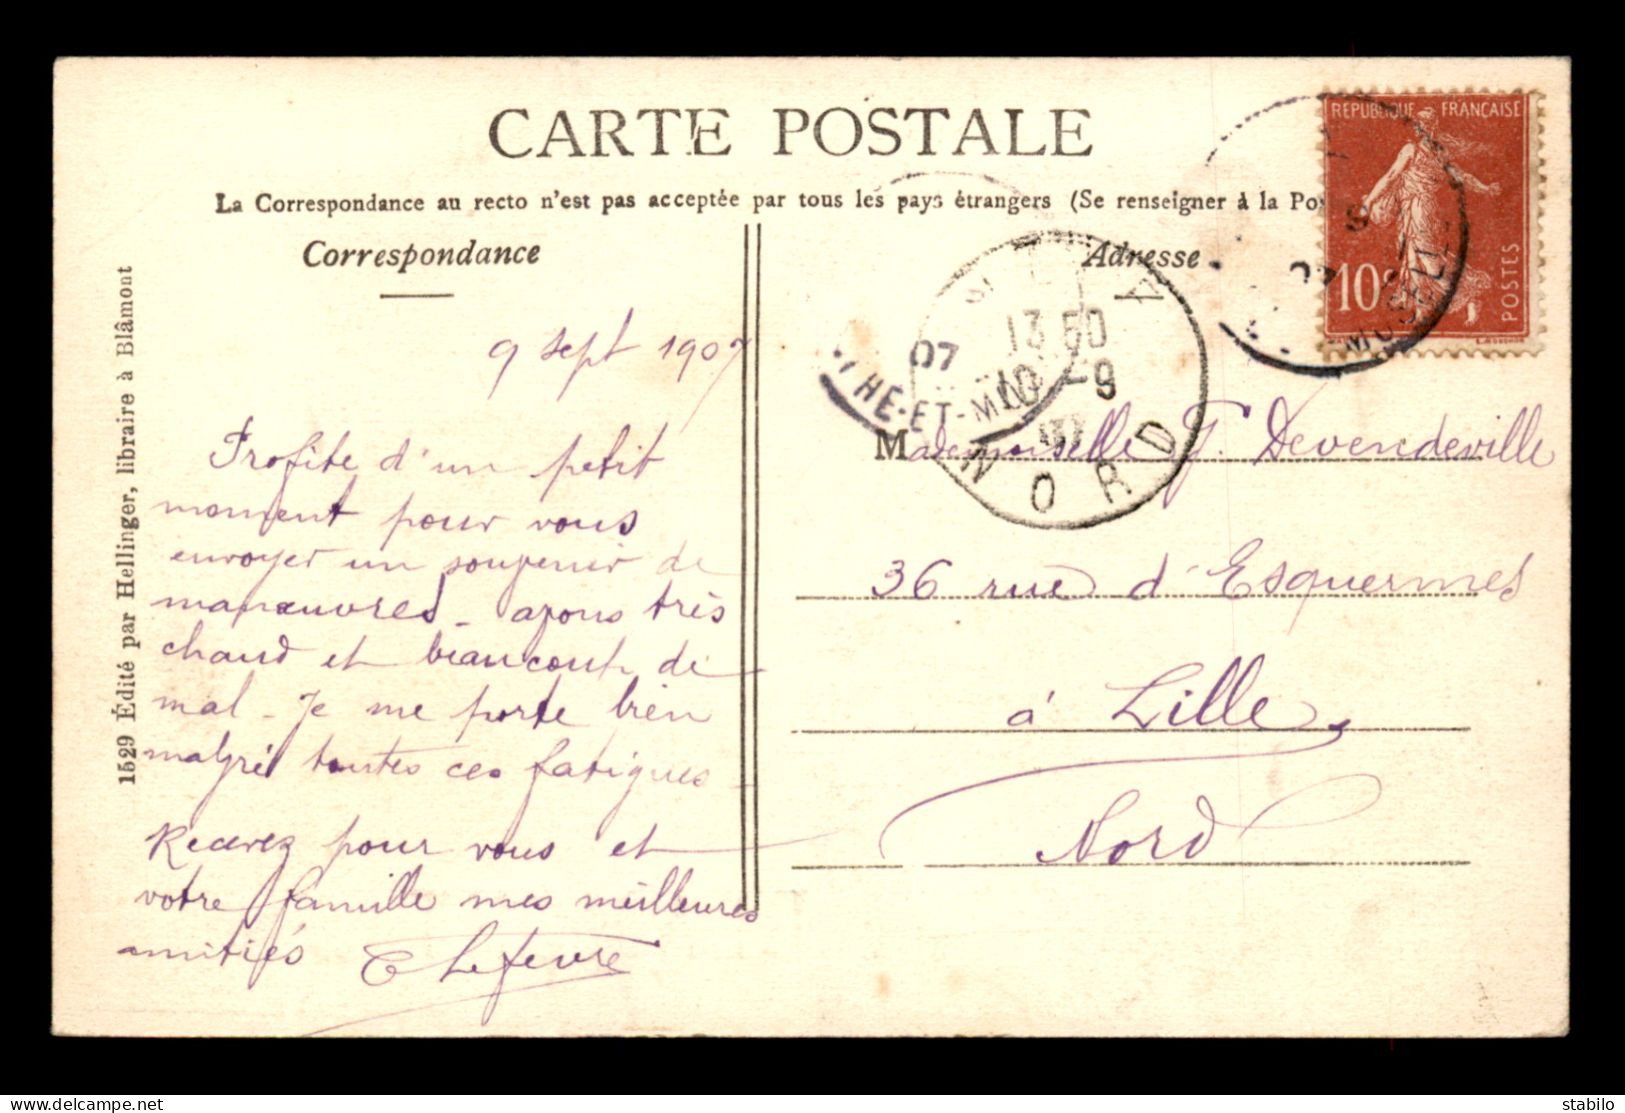 CARTE POSTALE
La Correspondance au recto n'est pas acceptée par tous les pays étrangers (Se renseigner à la Pos
Correspondance
Adresse
1529 Édité par Hellinger, libraire à Blâmont
9 sept 1907
Profite d'un petit
moment pour vous
envoyer un souvenir de
manœuvres - avons très
chaud et beaucoup de
mal - Je me porte bien
malgré toutes ces fatigues
Recevez pour vous et
votre famille mes meilleures
amitiés Lefevre
Mademoiselle Devendeville
36 rue d'Esquermes
à Lille
Nord
REPUBLIQUE FRANÇAISE
10c
POSTES
07
HE-ET-M
13 50
10 -9
07
NORD
MOSELLE